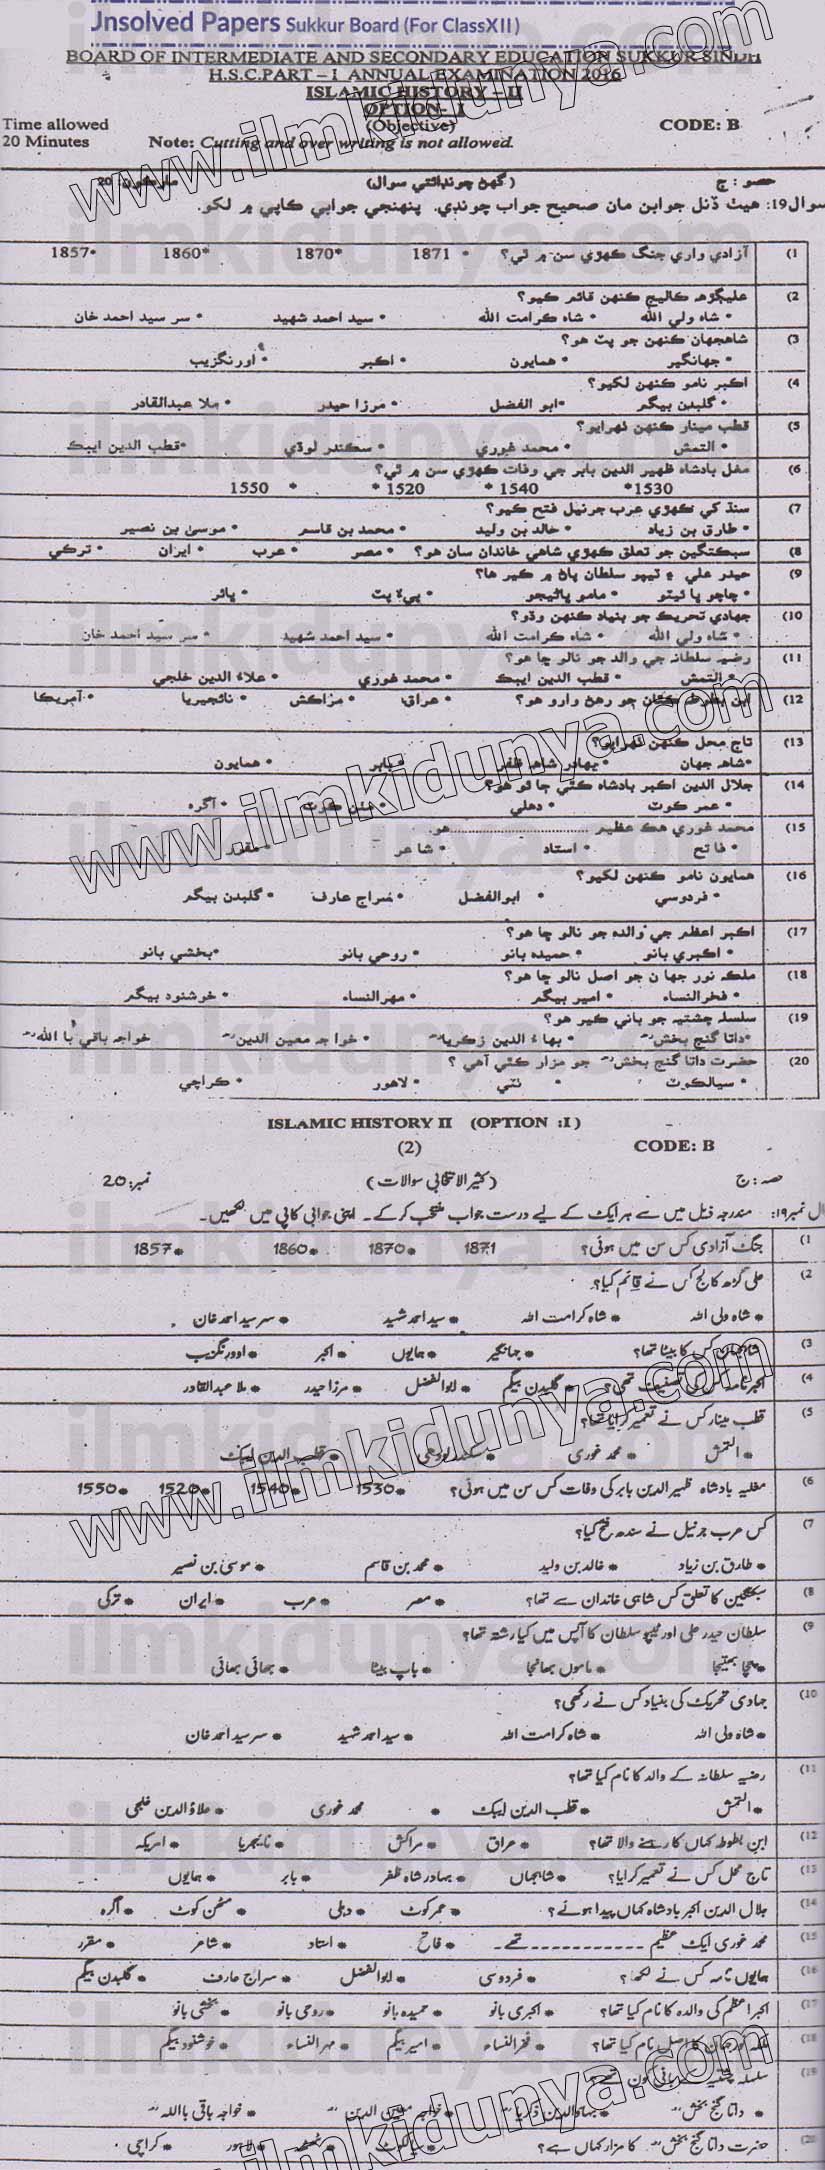 Jnsolved Papers Sukkur Board (For ClassXII)
BOARD OF INTERMEDIATE AND SECONDARY EDUCATION SUKKUR SINDH
H.S.C.PART – I ANNUAL EXAMINATION 2016
ISLAMIC HISTORY – II
OPTION- I
Time allowed (Objective) CODE: B
20 Minutes Note: Cutting and over writing is not allowed.
حصو : ج (گهڻ چونڊائتي سوال) مارڪون: 20
سوال19: هيٺ ڏنل جوابن مان صحيح جواب چونڊي. پنهنجي جوابي ڪاپي ۾ لکو.
(1 آزادي واري جنگ ڪهڙي سن ۾ ٿي؟ • 1871 •1870 •1860 •1857
(2 عليڳڙھ ڪاليج ڪنهن قائم ڪيو؟
• شاھ ولي الله • شاھ ڪرامت الله • سيد احمد شهيد • سر سيد احمد خان
(3 شاهجهان ڪنهن جو پٽ هو؟
• جهانگير • همايون • اڪبر • اورنگزيب
(4 اڪبر نامو ڪنهن لکيو؟
• گلبدن بيگم •ابو الفضل • مرزا حيدر • ملا عبدالقادر
(5 قطب مينار ڪنهن ٺهرايو؟
• التمش • محمد غوري • سڪندر لوڌي •قطب الدين ايبڪ
(6 مغل بادشاھ ظهير الدين بابر جي وفات ڪهڙي سن ۾ ٿي؟
•1530 • 1540 • 1520 • 1550
(7 سنڌ کي ڪهڙي عرب جرنيل فتح ڪيو؟
• طارق بن زياد • خالد بن وليد • محمد بن قاسم • موسيٰ بن نصير
(8 سبڪتگين جو تعلق ڪهڙي شاهي خاندان سان هو؟ • مصر • عرب • ايران • ترڪي
(9 حيدر علي ۽ ٽيپو سلطان پاڻ ۾ ڪير ها؟
• چاچو ڀائيٽو • مامو ڀاڻيجو • پيءُ پٽ • ڀائر
(10 جهادي تحريڪ جو بنياد ڪنهن وڌو؟
• شاھ ولي الله • شاھ ڪرامت الله • سيد احمد شهيد • سر سيد احمد خان
(11 رضيہ سلطانہ جي والد جو نالو ڇا هو؟
• التمش • قطب الدين ايبڪ • محمد غوري • علاءُ الدين خلجي
(12 ابن بطوطہ ڪٿان جو رهڻ وارو هو؟ • عراق • مراڪش • نائجيريا • آمريڪا
(13 تاج محل ڪنهن ٺهرايو؟
•شاھ جهان • بهادر شاھ ظفر • بابر • همايون
(14 جلال الدين اڪبر بادشاھ ڪٿي ڄائو هو؟
• عمر ڪوٽ • دهلي • مٺن ڪوٽ • آگره
(15 محمد غوري هڪ عظيم .................... هو.
• فاتح • استاد • شاعر • مقرر
(16 همايون نامو ڪنهن لکيو؟
• فردوسي • ابوالفضل • سراج عارف • گلبدن بيگم
(17 اڪبر اعظم جي والده جو نالو ڇا هو؟
• اڪبري بانو • حميده بانو • روحي بانو •بخشي بانو
(18 ملڪہ نور جهان جو اصل نالو ڇا هو؟
• فخرالنساء • امير بيگم • مهرالنساء • خوشنود بيگم
(19 سلسلہ چشتيہ جو باني ڪير هو؟
•داتا گنج بخش • بهاءُ الدين زڪريا • خواجہ معين الدين خواجہ باقي باالله
(20 حضرت داتا گنج بخش جو مزار ڪٿي آهي ؟
• سيالڪوٽ • ٺٽي • لاهور • ڪراچي
ISLAMIC HISTORY II (OPTION :I)
(2) CODE: B
حصہ : ج (کثیر الانتخابی سوالات) نمبر: 20
ال نمبر ۱۹: مندرجہ ذیل میں سے ہر ایک کے لیے درست جواب منتخب کر کے۔ اپنی جوابی کاپی میں لکھیں۔
(1 جنگ آزادی کس سن میں ہوئی؟ 1871 •1870 •1860 •1857
(2 علی گڑھ کالج کس نے قائم کیا؟
• شاہ ولی اللہ • شاہ کرامت اللہ • سید احمد شہید • سر سید احمد خان
(3 شاہجہان کس کا بیٹا تھا؟ • جہانگیر • ہمایوں • اکبر • اورنگزیب
(4 اکبر نامہ کس کی تصنیف تھی؟ • گلبدن بیگم • ابوالفضل • مرزا حیدر • ملا عبدالقادر
(5 قطب مینار کس نے تعمیر کرایا تھا؟
• التمش • محمد غوری • سکندر لودھی • قطب الدین ایبک
(6 مغلیہ بادشاہ ظہیر الدین بابر کی وفات کس سن میں ہوئی؟ •1530 •1540 •1520 •1550
(7 کس عرب جرنیل نے سندھ فتح کیا؟
• طارق بن زیاد • خالد بن ولید • محمد بن قاسم • موسیٰ بن نصیر
(8 سبکتگین کا تعلق کس شاہی خاندان سے تھا؟ • مصر • عرب • ایران • ترکی
(9 سلطان حیدر علی اور ٹیپو سلطان کا آپس میں کیا رشتہ تھا؟
• چچا بھتیجا • ماموں بھانجا • باپ بیٹا • بھائی بھائی
(10 جہادی تحریک کی بنیاد کس نے رکھی؟
• شاہ ولی اللہ • شاہ کرامت اللہ • سید احمد شہید • سر سید احمد خان
(11 رضیہ سلطانہ کے والد کا نام کیا تھا؟
• التمش • قطب الدین ایبک • محمد غوری • علاؤ الدین خلجی
(12 ابن بطوطہ کہاں کا رہنے والا تھا؟ • عراق • مراکش • نائیجریا • امریکہ
(13 تاج محل کس نے تعمیر کرایا؟ • شاہجہاں • بہادر شاہ ظفر • بابر • ہمایوں
(14 جلال الدین اکبر بادشاہ کہاں پیدا ہوئے؟ • عمر کوٹ • دہلی • مٹھن کوٹ • آگرہ
(15 محمد غوری ایک عظیم ........... تھے۔ • فاتح • استاد • شاعر • مقرر
(16 ہمایوں نامہ کس نے لکھا؟ • فردوسی • ابوالفضل • سراج عارف • گلبدن بیگم
(17 اکبر اعظم کی والدہ کا نام کیا تھا؟ • اکبری بانو • حمیدہ بانو • روحی بانو • بخشی بانو
(18 ملکہ نور جہاں کا اصل نام کیا تھا؟ • فخر النساء • امیر بیگم • مہر النساء • خوشنود بیگم
(19 سلسلہ چشتیہ کے بانی کون تھے؟
• داتا گنج بخش • بہاؤالدین ذکریا • خواجہ معین الدین • خواجہ باقی بااللہ
(20 حضرت داتا گنج بخش کا مزار کہاں ہے؟ • سیالکوٹ • ٹھٹھہ • لاہور • کراچی
www.ilmkidunya.com
www.ilmkidunya.com
www.ilmkidunya.com
www.ilmkidunya.com